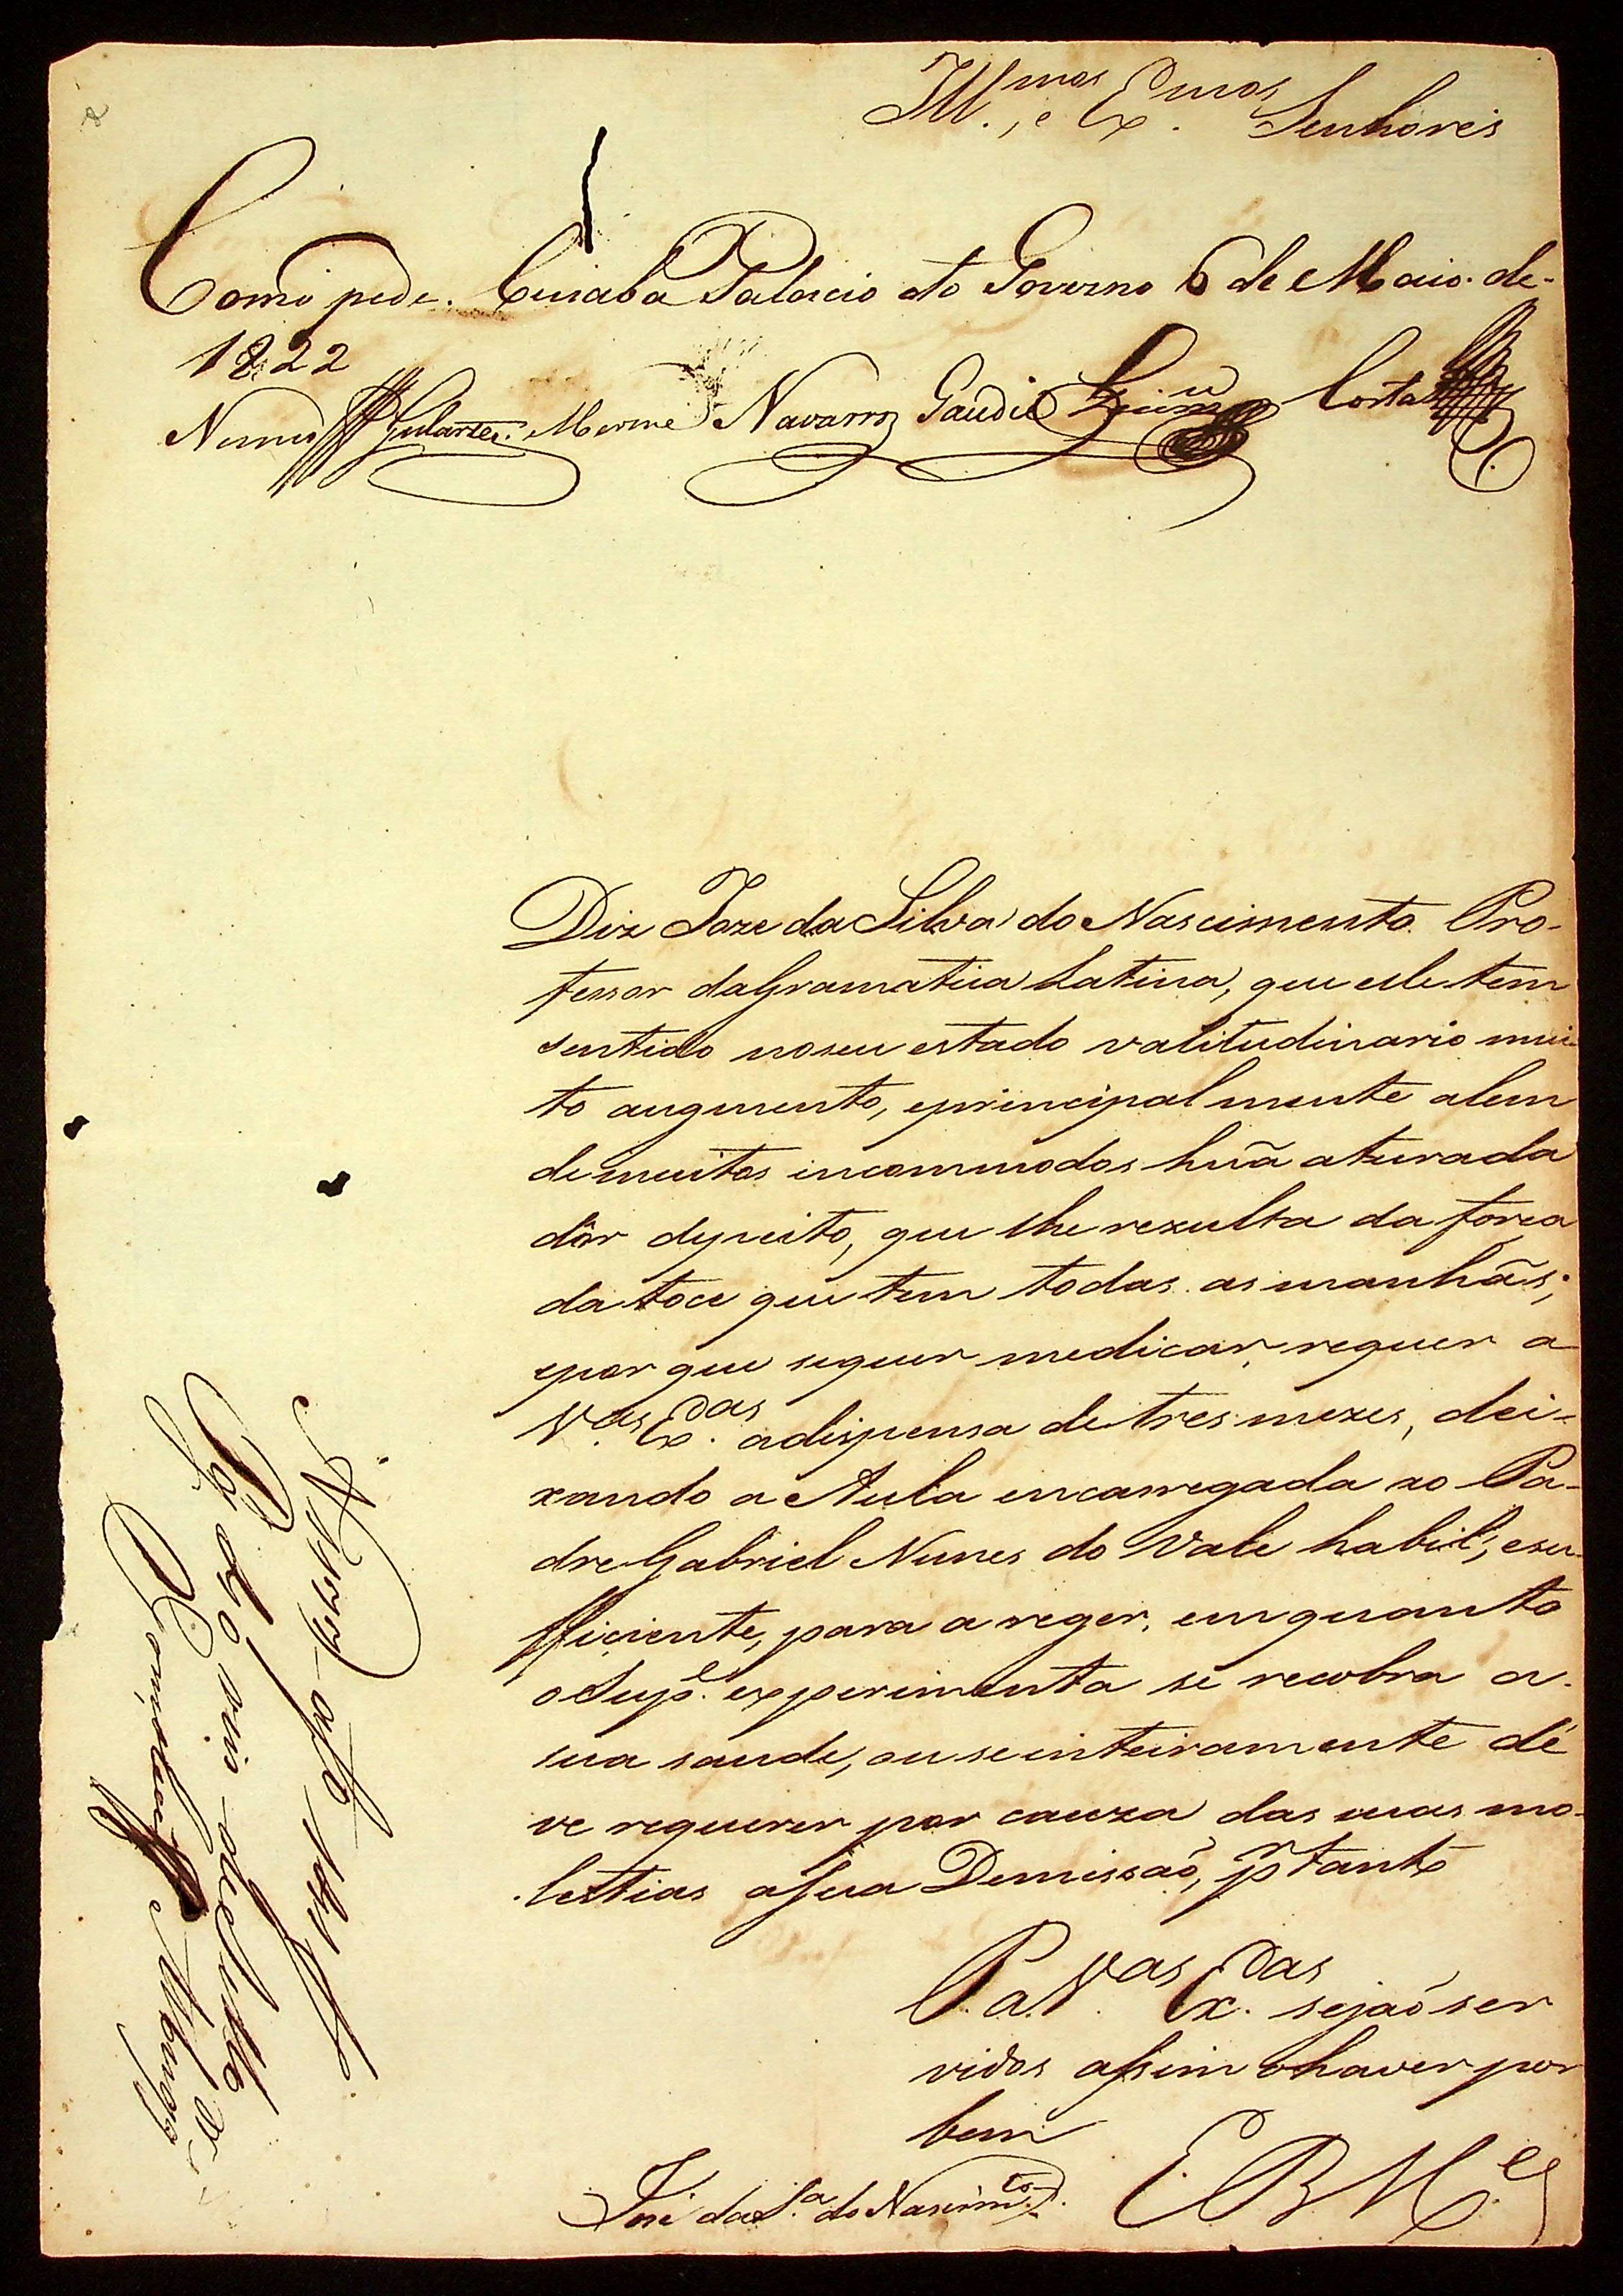 Ill.mos, e Ex.mos Senhores
Como pede. Cuiabá Palacio do Governo 6 de Maio de
1822
Nunes Gularte. Merme Navarro Gaudie Costa
Diz Joze da Silva do Nascimento Pro-
fessor da Gramatica Latina, que elle tem
sentido no seu estado valitudinario mui-
to augmento, e principal mente alem
de muitos incommodos huã aturada
dôr de peito, que lhe rezulta da força
da toce que tem todas as manhãs;
e por que se quer medicar, requer a
V.as Ex.cas a dispensa de tres mezes, dei-
xando a Aula encarregada ao Pa-
dre Gabriel Nunes do Vale habil, e su-
fficiente, para a reger, em quanto
o Sup.e experimenta se recobra a
sua saude, ou se inteiramente dé
ve requerer por cauza das suas mo-
lestias a sua Demissaõ, p.r tanto
P. a V.as Ex.cas sejaõ ser
vidos assim o haver por
bem
E R M.ce
José da S.a do Nascim.to